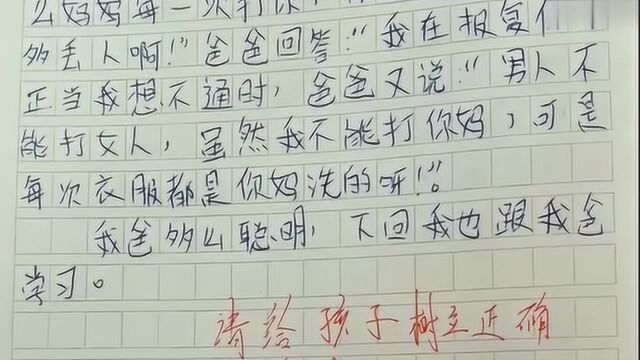 么妈妈每一次打你，
多丢人啊！"爸爸回答："我在报复
正当我想不通时，爸爸又说："男人不
能打女人，虽然我不能打你妈，可是
每次衣服都是你妈洗的呀！"
我爸多么聪明，下回我也跟我爸
学习。
请给孩子树立正确